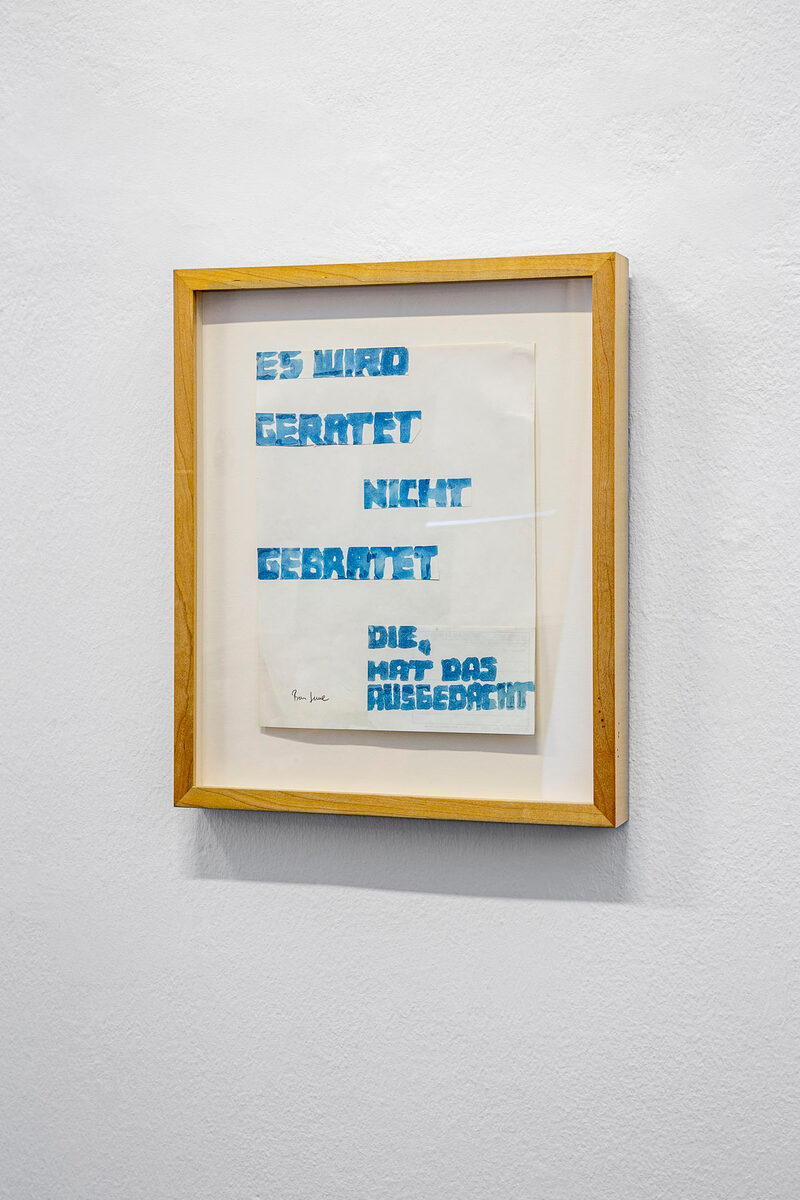 ES WIRD
GERATET
NICHT
GEBRATET
DIE,
HAT DAS
AUSGEDACHT